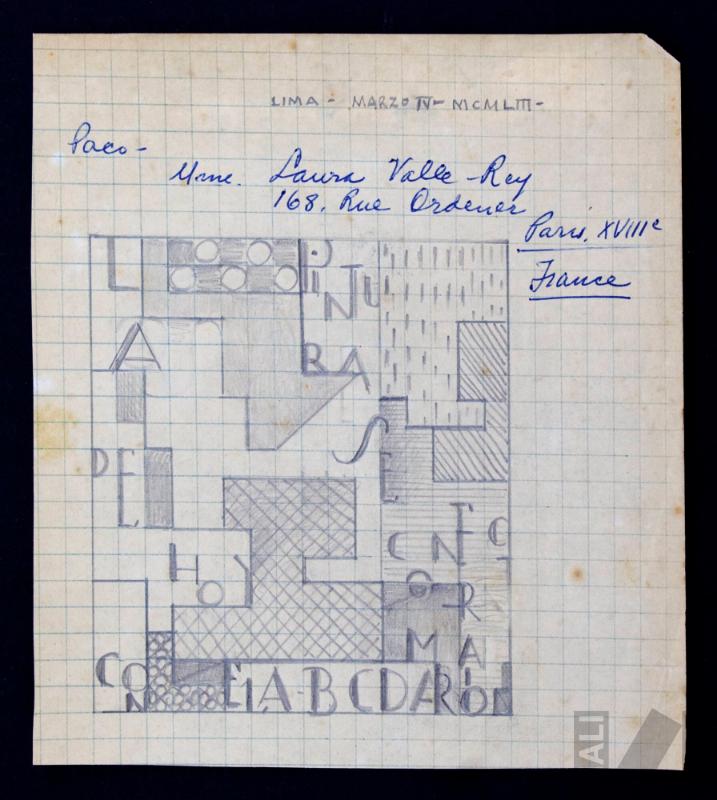 LIMA - MARZO IV - MCMLIII -
Paco -
Mme. Laura Valle-Rey
168, Rue Ordener
Paris, XVIIIe
France
LA
PINTURA
DE HOY
SE
CON
EL A-B C D
ALI